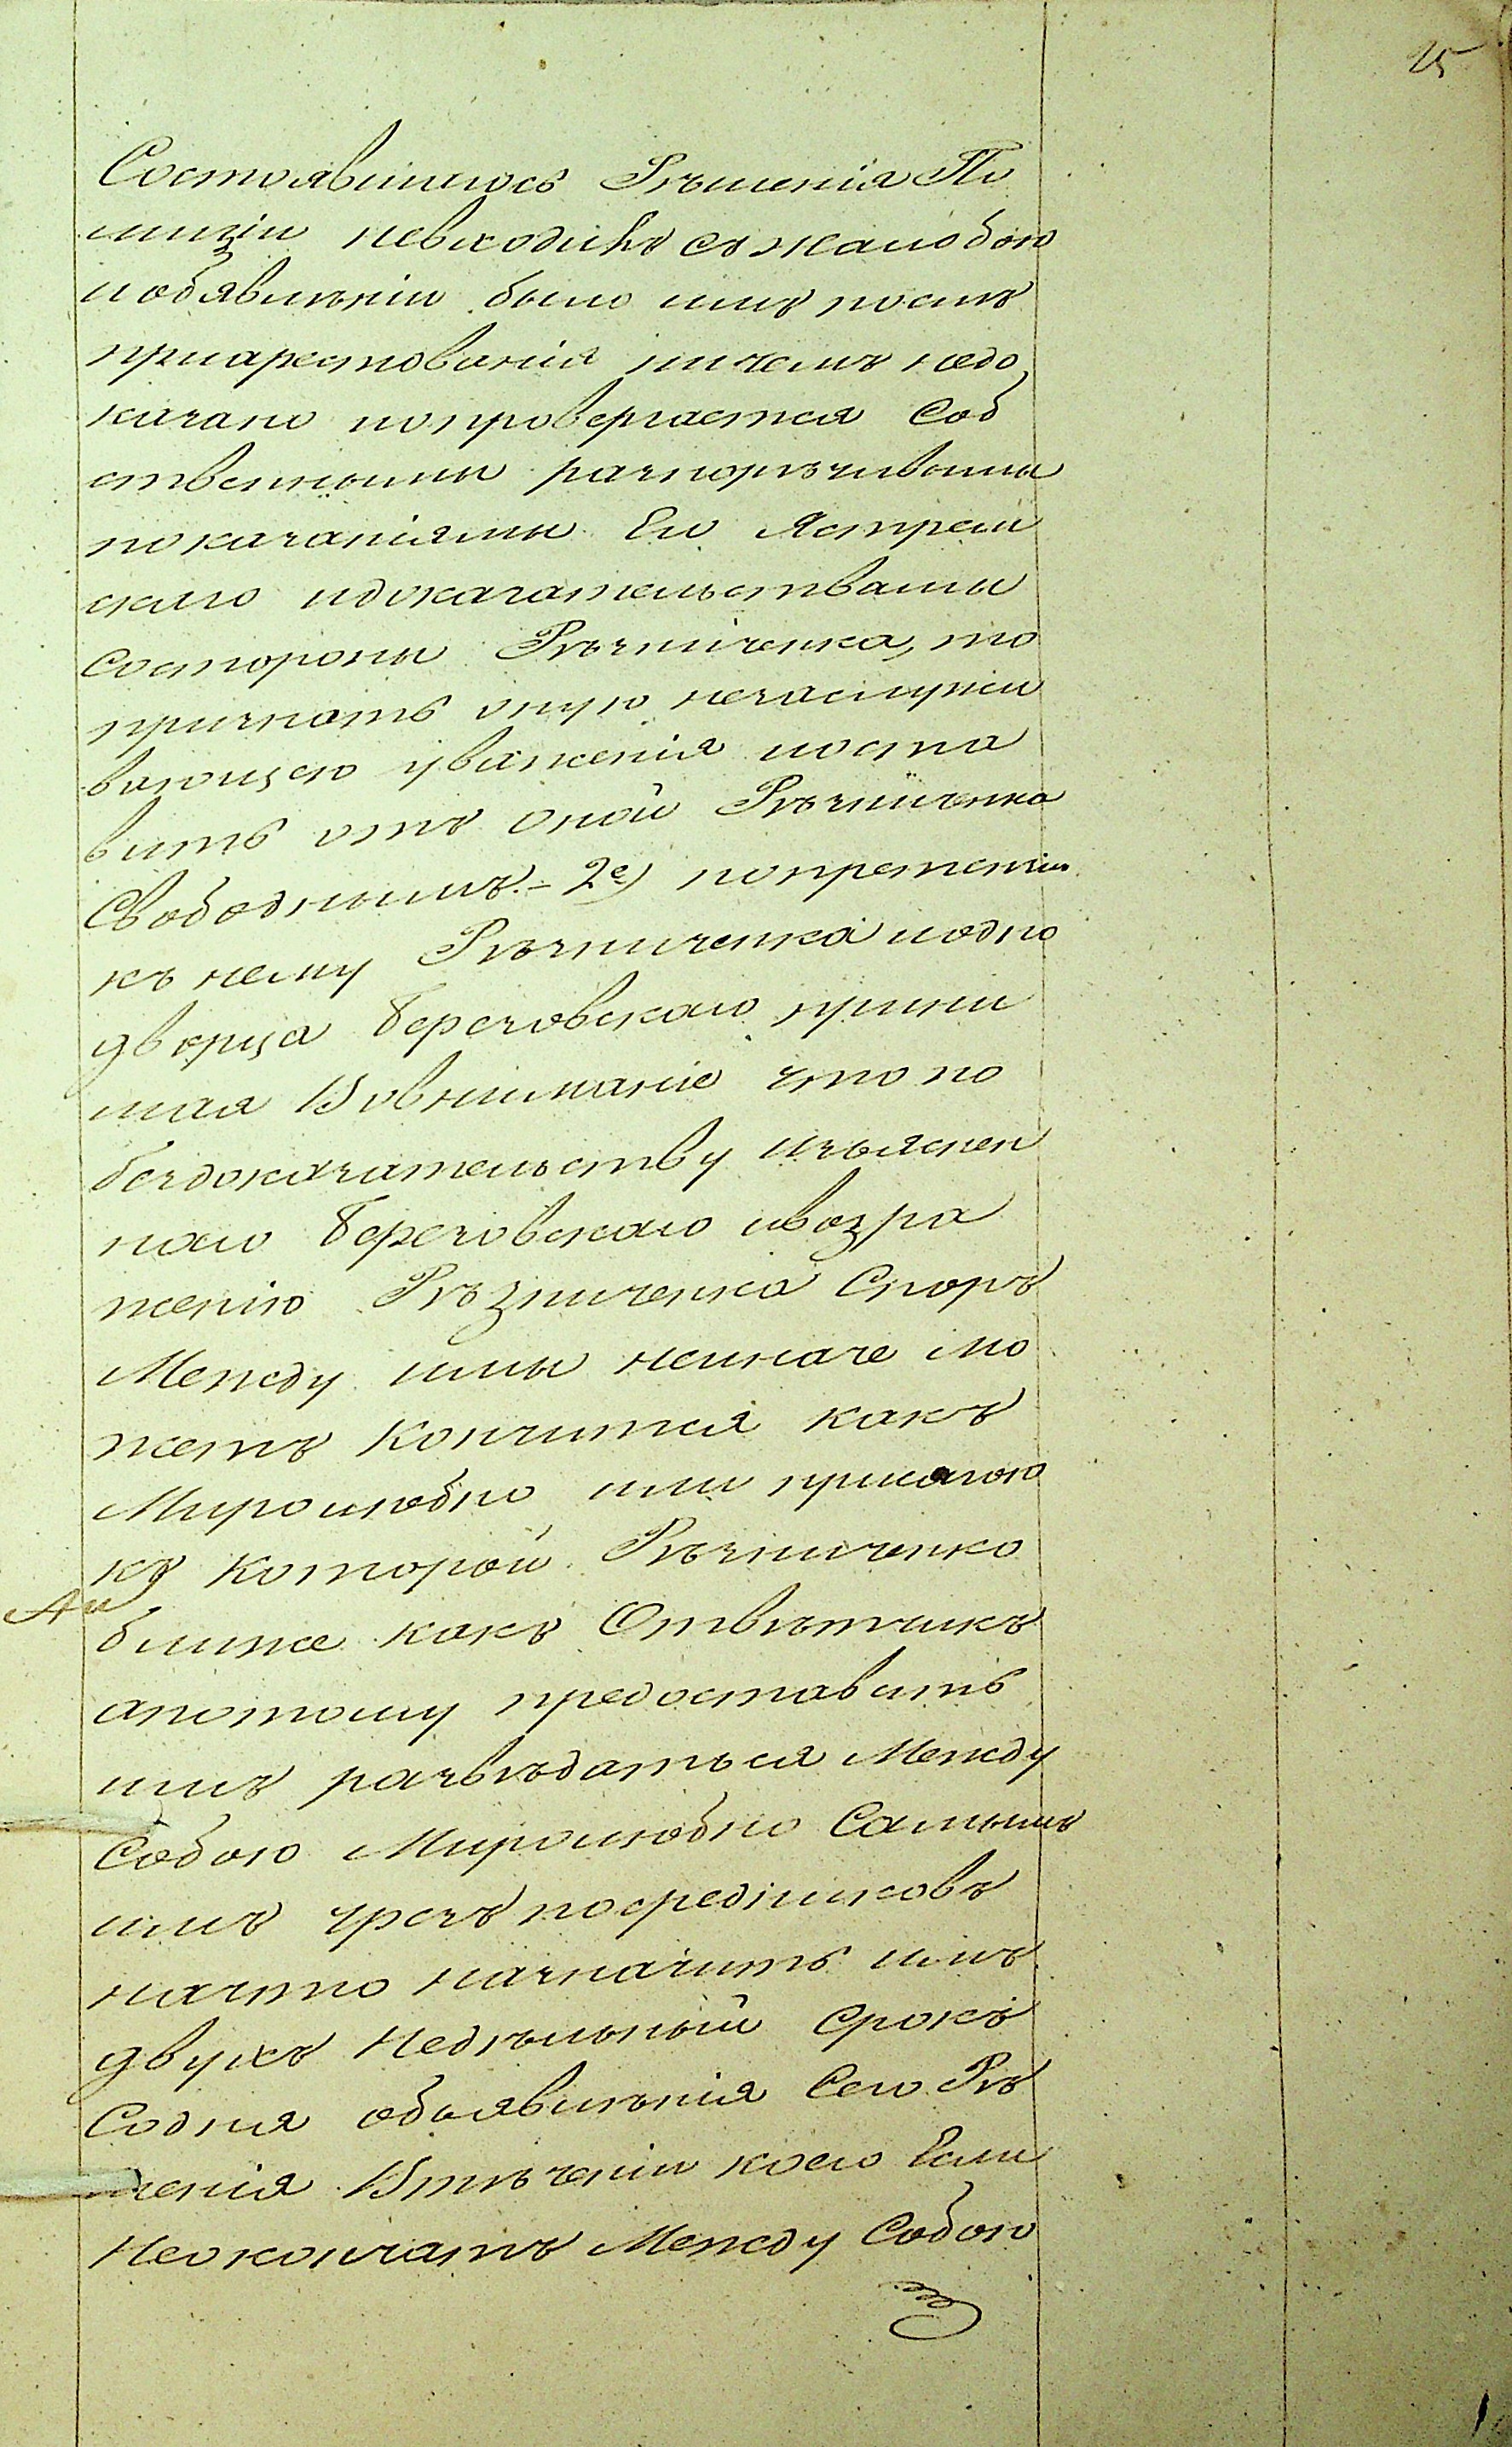 25
Состоявшигось Рѣшенія По
лиціи невходилъ съ жалобою
иобявлѣніи было имъ послѣ
приарестованія ничемъ недо
казано иопровергается Соб
ственными разнорѣчивыми
показаніями Его Ястрем
скаго идоказательствами
Состороны Рѣзниченка, то
признать оную незаслужи
вающею уваженія иоста
вить отъ оной Рѣзниченка
Свободнымъ.– 2е) попретензіи
къ нему Рѣзниченка иодно
дворца Березовскаго прини
мая Вовниманіе что по
бездоказательству изъяснен
наго Березовскаго ивозра
женію Рѣзниченка Споръ
Между ими неиначе мо
жетъ Кончится какъ
Миролюбно или присягою
къ которой Рѣзниченко
ближе какъ Отвѣтчикъ
апотому предоставить
имъ развѣдаться Между
Собою Миролюбно Самымъ
имъ чрезъ посредниковъ
начто назначить имъ
двухъ Недѣльный Срокъ
Содня объявлѣнія Сего Рѣ
шенія Втѣченіи коего Если
Неокончатъ Между Собою